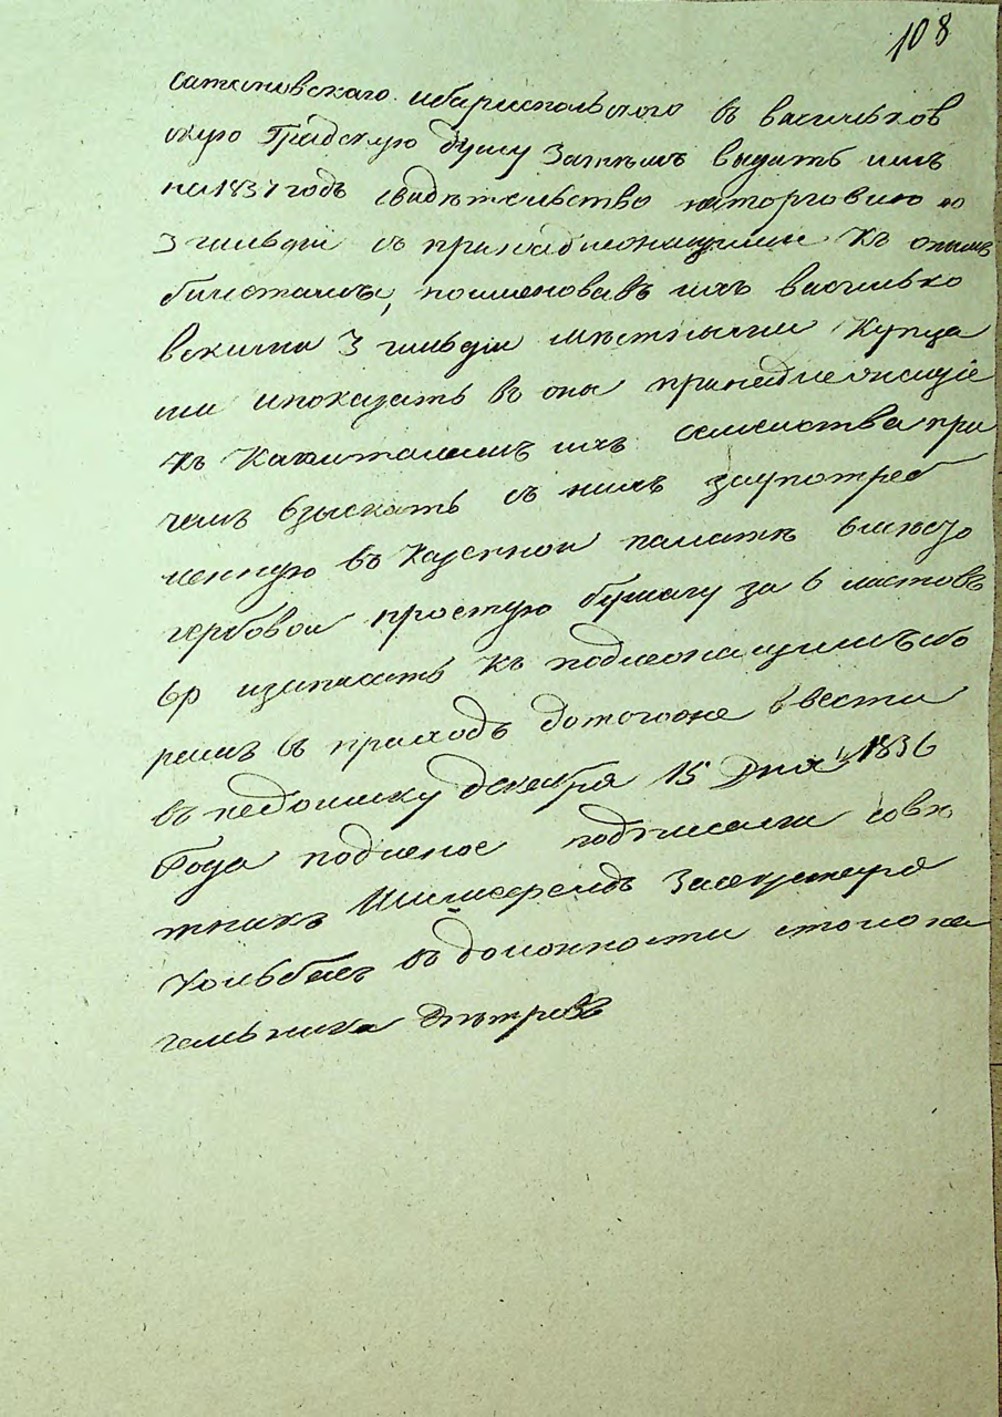 108
сатановскаго ибариспольского въ васильков
скую Градскую думу Затемъ выдать имъ
на 1837 годъ свидѣтельство наторговлю по
3 гильдіи съ принадлежащими къ онымъ
билетамы, поименовавъ ихъ василько
вскими 3 гильдіи мѣстными Купца
ми ипоказать въ оны принадлежащіе
къ Капиталамъ ихъ семейства при
чемъ взыскать съ нихъ заупотреб
ленную въ Казенной палатѣ вмѣсто
гербовой простую бумагу за 6 листовъ
6р изаписать къ подлежащимъ сбо
рамъ въ приходъ дотогоже ввести
въ недоимку декабря 15 Дня 1836
Года подленое подписали совѣ
тникъ Засекретаря
въ должности столона
чальника Дмитровъ